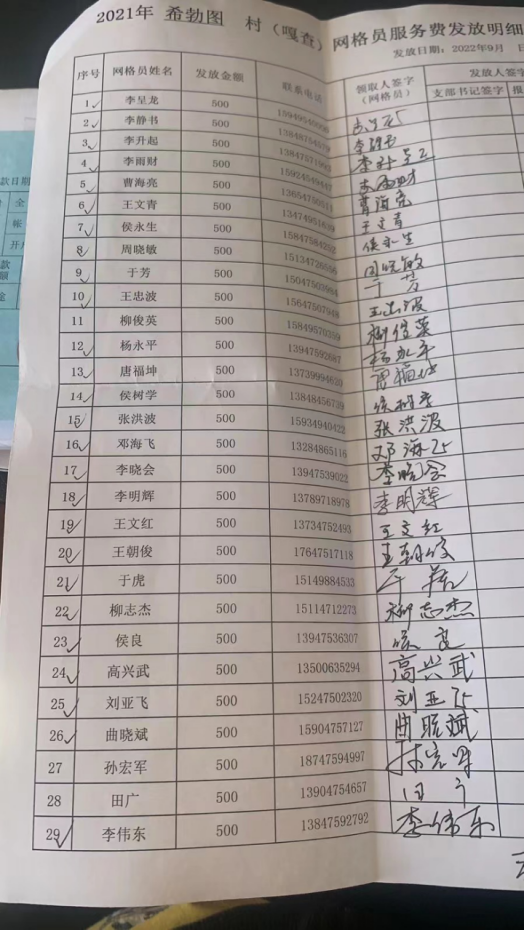 2021年 希勃图 村（嘎查）网格员服务费发放明细
发放日期：2022年9月
序号 网格员姓名 发放金额 联系电话 领取人签字（网格员） 发放人签字
支部书记签字
1 李呈龙 500
2 李静书 500
3 李升起 500
4 李雨财 500
5 曹海亮 500 曹海亮
6 王文青 500 王文青
7 侯永生 500 侯永生
8 周晓敏 500 周晓敏
9 于芳 500 于芳
10 王忠波 500 王忠波
11 柳俊英 500 15849570259 柳俊英
12 杨永平 500 13947592687 杨永平
13 唐福坤 500 13739994620 唐福坤
14 侯树学 500 13848456739 侯树学
15 张洪波 500 15934940422 张洪波
16 邓海飞 500 13284865116 邓海飞
17 李晓会 500 13947539022 李晓会
18 李明辉 500 13789718978 李明辉
19 王文红 500 13734752493 王文红
20 王朝俊 500 17647517118 王朝俊
21 于虎 500 15149884533 于虎
22 柳志杰 500 15114712273 柳志杰
23 侯良 500 13947536307 侯良
24 高兴武 500 13500635294 高兴武
25 刘亚飞 500 15247502320 刘亚飞
26 曲晓斌 500 15904757127 曲晓斌
27 孙宏军 500 18747594997 孙宏军
28 田广 500 13904754657 田广
29 李伟东 500 13847592792 李伟东